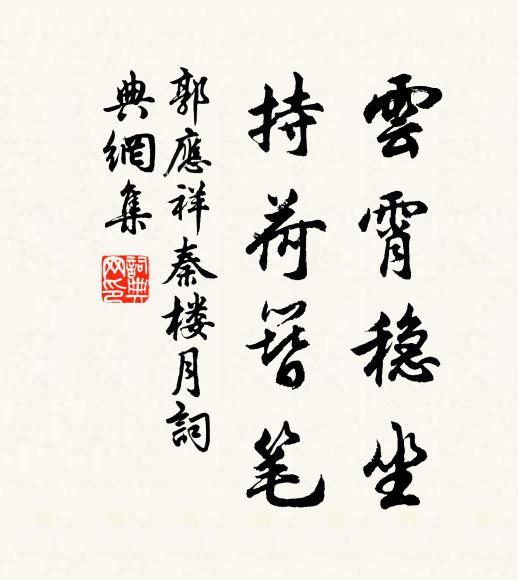 雲霄穏坐
持荷簪笔
郭應祥秦楼月詞
典網集
詞典網印